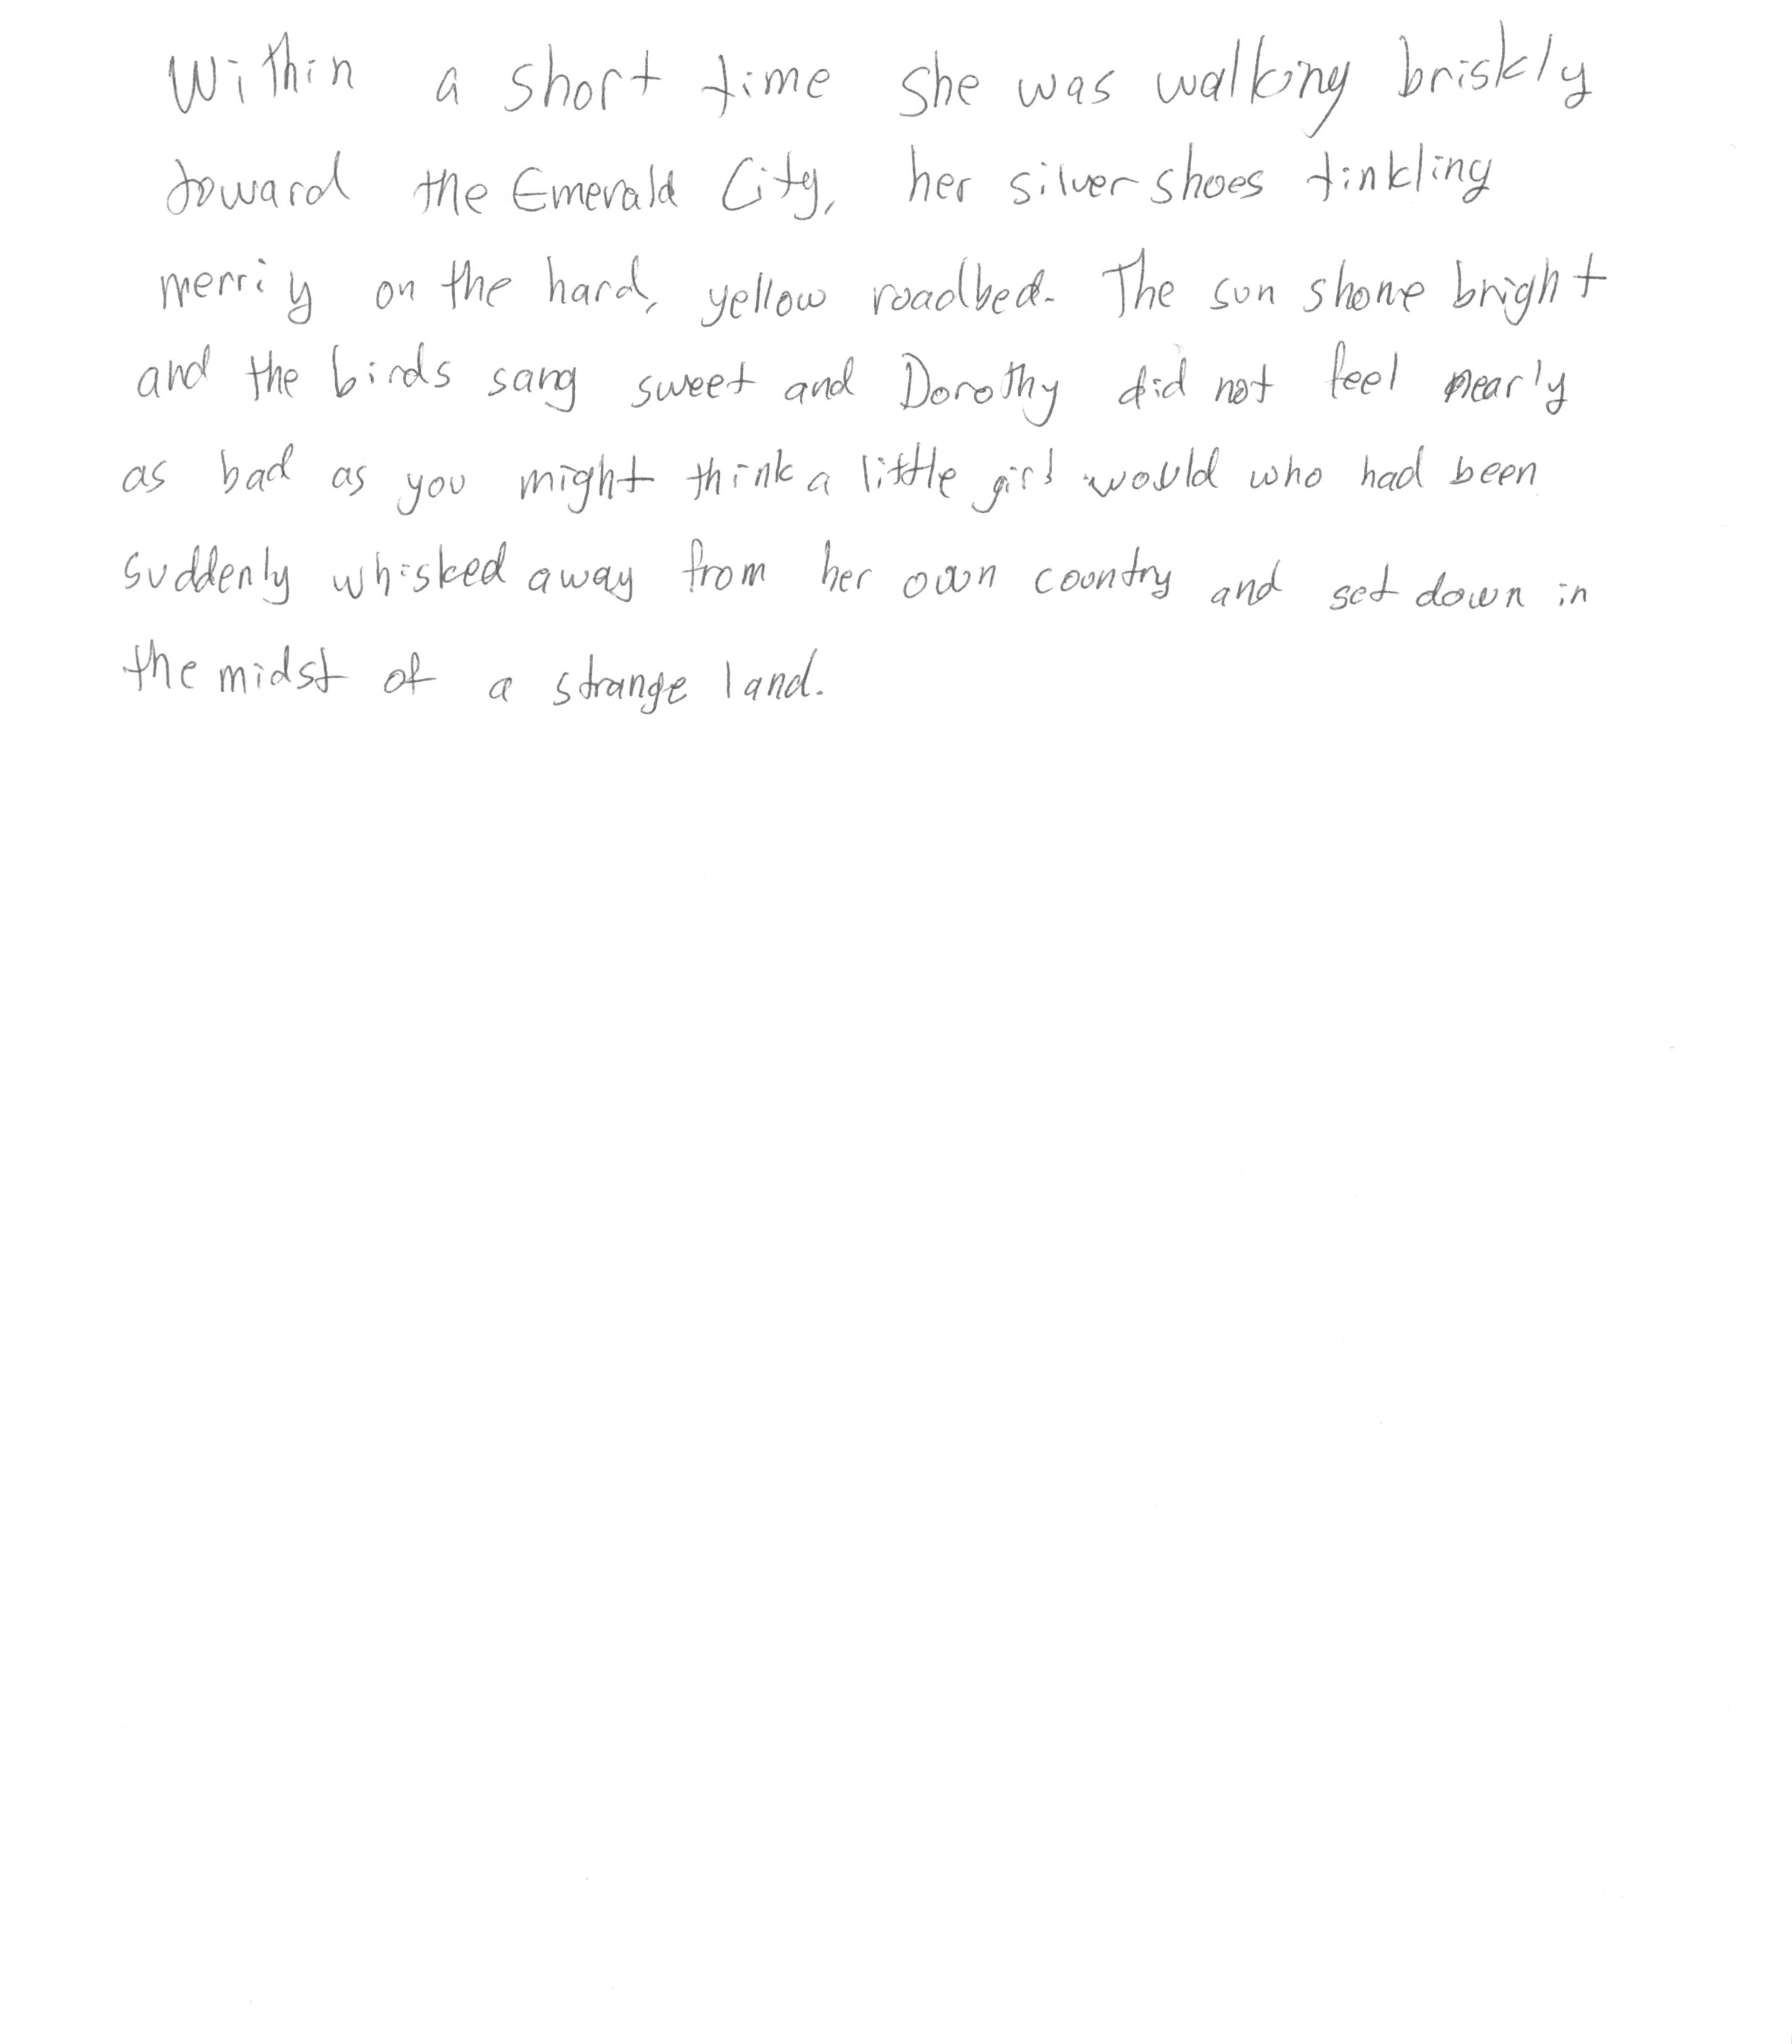 Within a short time she was walking briskly
toward the Emerald City, her silver shoes tinkling
merriy on the hard, yellow roadbed. The sun shone bright
and the birds sang sweet and Dorothy did not feel nearly
as bad as you might think a little girl would who had been
suddenly whisked away from her own country and set down in
the midst of a strange land.